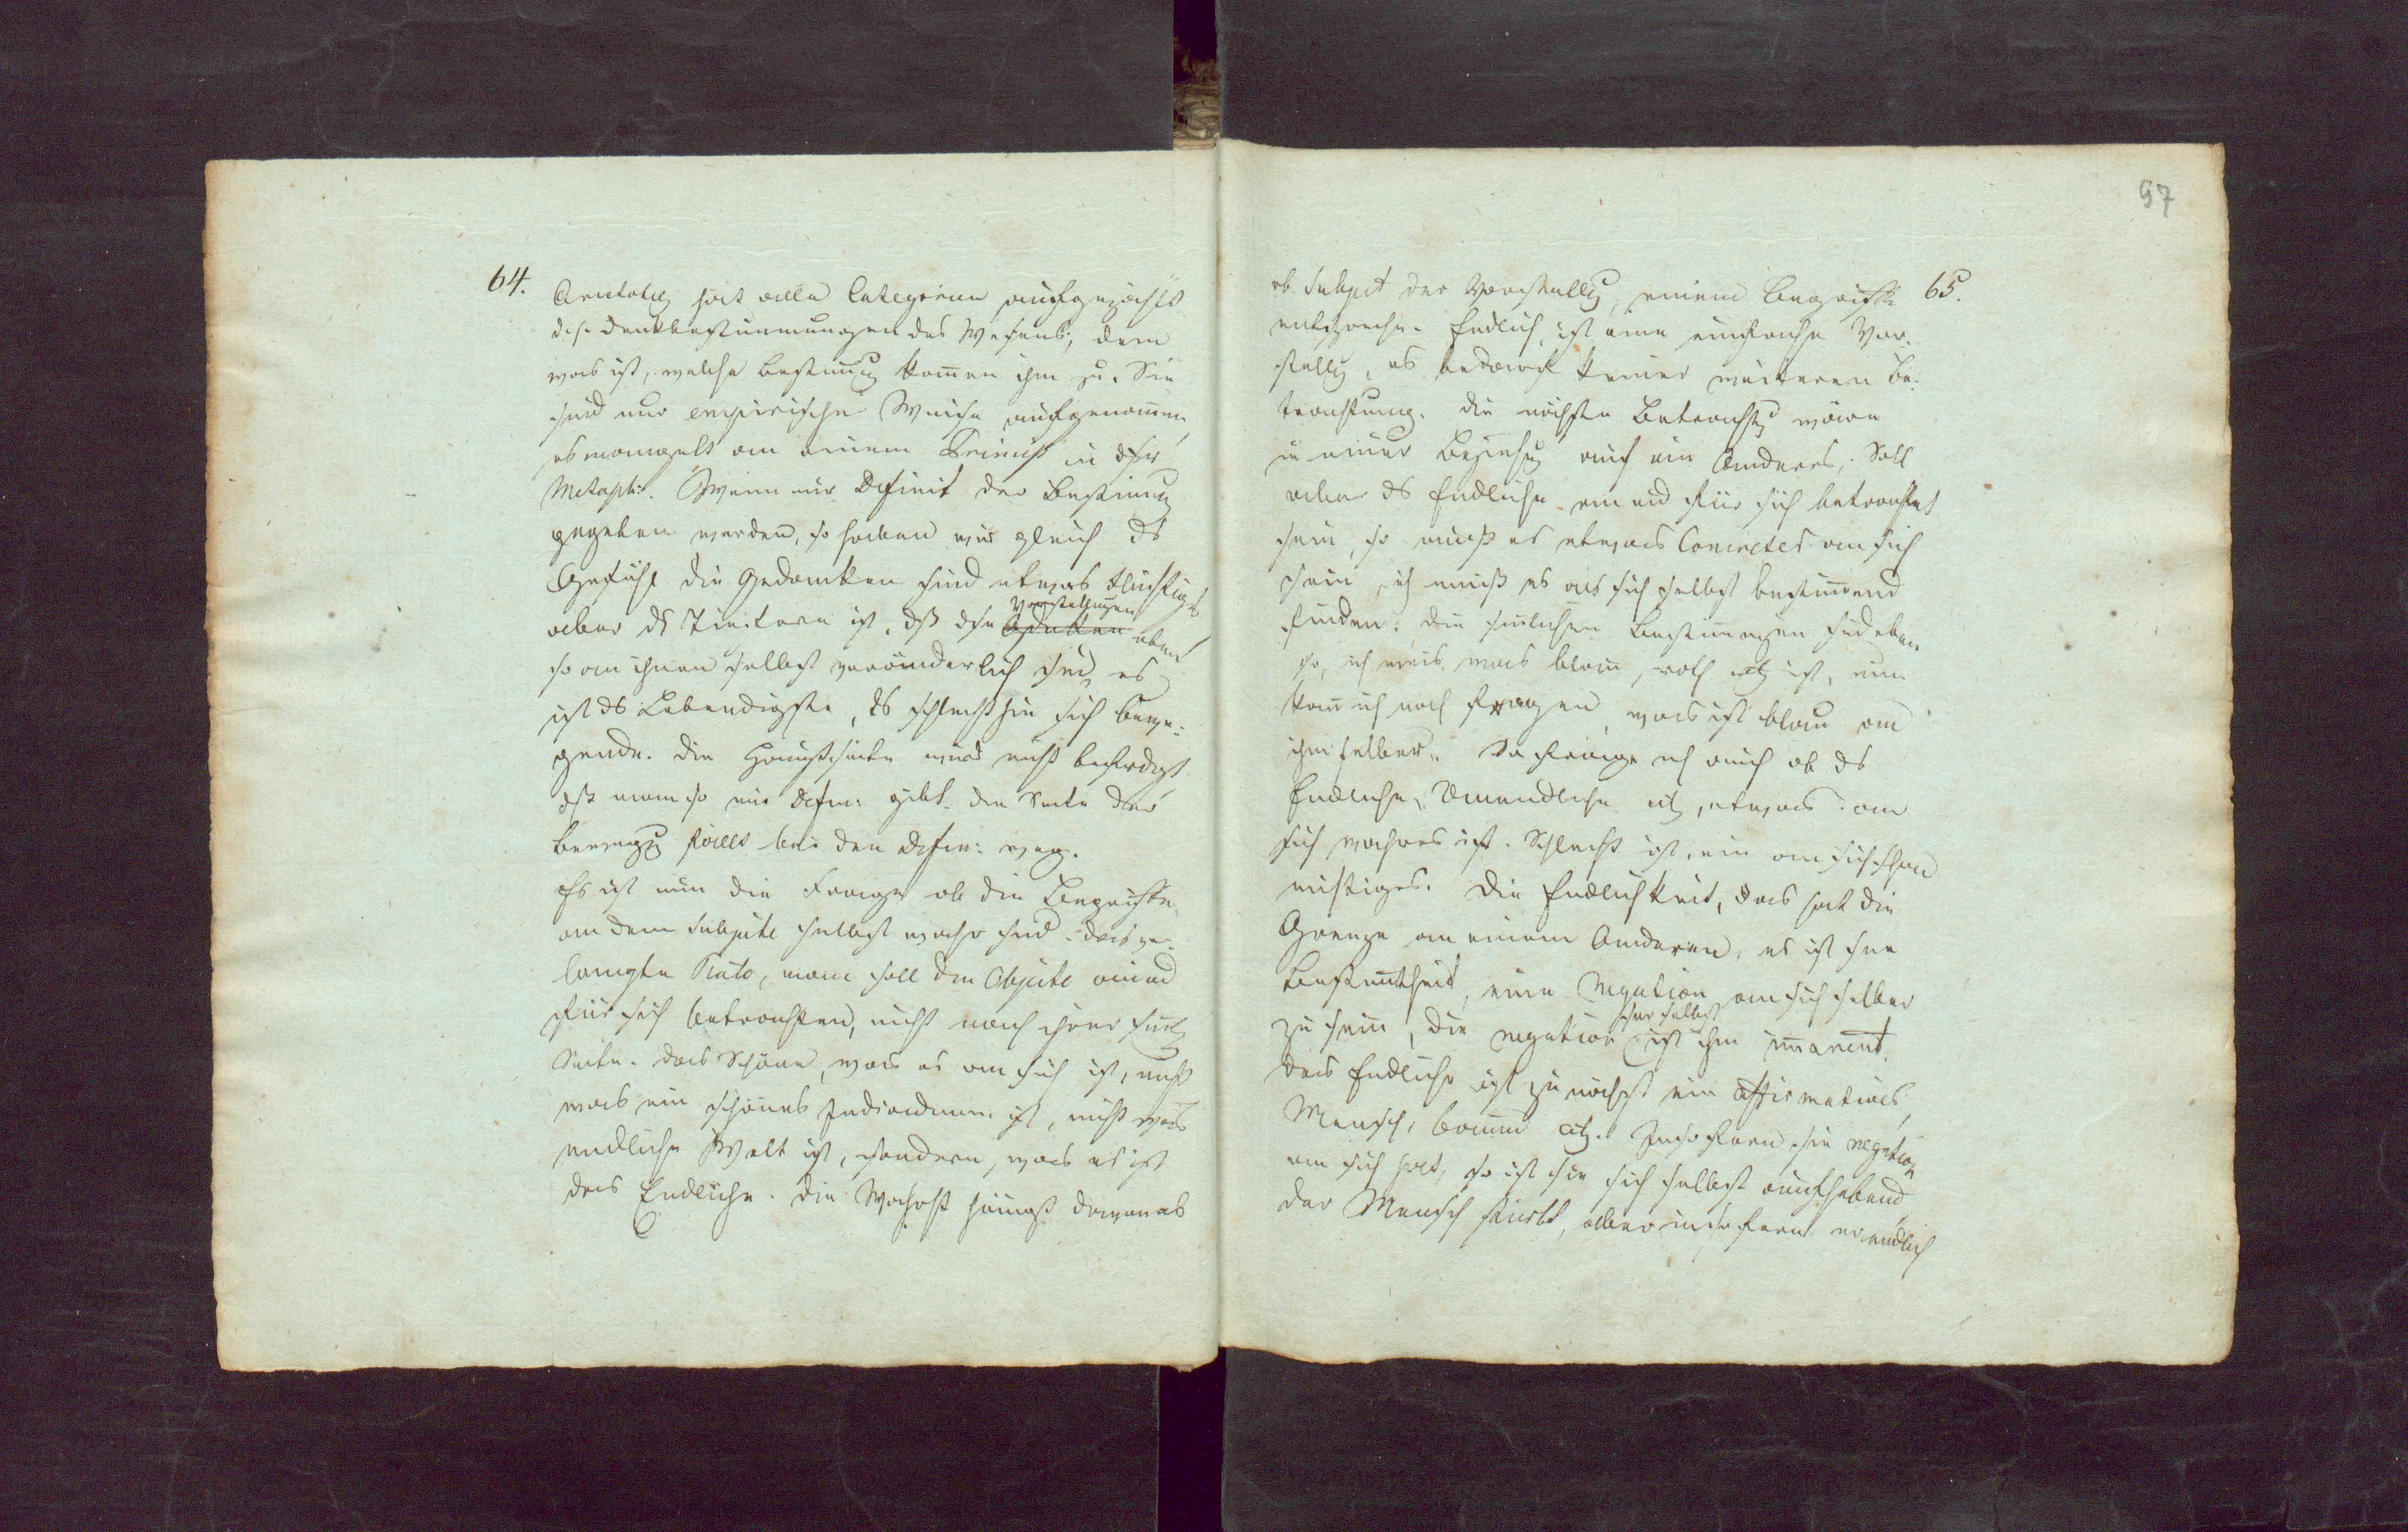 64.
Aristoteles hat alle Categorien aufgezählt
d. h. Denkbestimmungen des Wesens; dem
was ist, welche Bestimug kommen ihm zu. Sie
sind nur empirische Weise aufgenommen,
es mangelt an einem Princip in dser
Metaph:. Wenn nur Definit der Bestimug
gegeben werden, so haben wir gleich ds
Gefühl die Gedanken sind etwas flüchtiges
aber ds Tiefere ist, dß dse Vorstellungen eben
so an ihnen selbst veränderlich sind, es
ist ds Lebendigste, ds schlechthin sich bewe-
gende. Die Hauptseite wird nicht befriedigt
dß man so nur Defin: gibt. Die Seite der
Bewegug fällt bei den Defin: weg.
Es ist nun die Frage ob die Begriffe
an dem Subjecte selbst wahr sind. Das ver-
langte Plato, man soll die Objecte an und
für sich betrachten, nicht nach ihrer
Seite. Das Schöne, was es an sich ist, nicht
was ein schönes Individuum ist, nicht was
endliche Welt ist, sondern, was es ist
das Endliche. Die Wahrht hängt davon ab
97
65.
ob Subject der Vorstellug, einem Begriffe
entspreche. Endlich ist eine einfache Vor-
stellg, es bedarf keiner weiteren Be-
trachtung. Die nächste Betrachtg wäre
in einer Beziehg auf ein Anderes. Soll
aber ds Endliche an und für sich betrachtet
sein, so muß es etwas Concretes an sich
sein, ich muß es als sich selbst bestimmend
finden. Die sinlichen Bestimugen sind eben
so, ich weis, was blau, roth etc ist, nun
kan ich noch fragen, was ist blau an
ihm selber. So frage ich auch ob ds
Endliche, Unendliche etc, etwas an
sich wahres ist. Schlecht ist, ein an sich schon
nichtiges. Die Endlichkeit, das hat die
Grenze an einem Anderen, es ist seine
Bestimtheit, eine Negation an sich selber
zu sein, die negation seiner selbst ist ihm imanent.
Das Endliche ist zunächst ein affirmatives,
Mensch, baum etc. Insofern sie negation
an sich hat, so ist sie sich selbst aufhebend
der Mensch stirbt, aber insofern er endlich